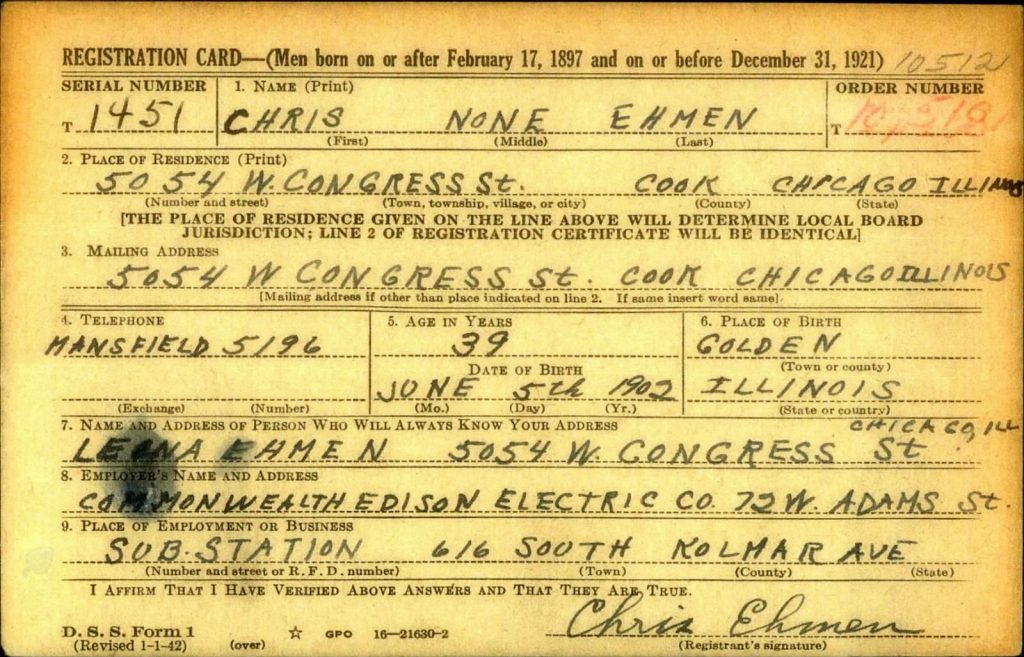 REGISTRATION CARD—(Men born on or after February 17, 1897 and on or before December 31, 1921) 10512
SERIAL NUMBER 1. NAME (Print) ORDER NUMBER
T 1451 CHRIS NONE EHMEN T
(First) (Middle) (Last)
2. PLACE OF RESIDENCE (Print)
5054 W. CONGRESS St. COOK CHICAGO ILLINOIS
(Number and street) (Town, township, village, or city) (County) (State)
[THE PLACE OF RESIDENCE GIVEN ON THE LINE ABOVE WILL DETERMINE LOCAL BOARD
JURISDICTION; LINE 2 OF REGISTRATION CERTIFICATE WILL BE IDENTICAL]
3. MAILING ADDRESS
5054 W CONGRESS St. COOK CHICAGO ILLINOIS
[Mailing address if other than place indicated on line 2. If same insert word same].
4. TELEPHONE 5. AGE IN YEARS 6. PLACE OF BIRTH
MANSFIELD 5196 39 GOLDEN
DATE OF BIRTH (Town or county)
JUNE 5th 1902 ILLINOIS
(Exchange) (Number) (Mo.) (Day) (Yr.) (State or country)
7. NAME AND ADDRESS OF PERSON WHO WILL ALWAYS KNOW YOUR ADDRESS CHICAGO, ILL
LEONA EHMEN 5054 W. CONGRESS St
8. EMPLOYER'S NAME AND ADDRESS
COMMONWEALTH EDISON ELECTRIC CO. 72 W. ADAMS St.
9. PLACE OF EMPLOYMENT OR BUSINESS
SUB. STATION 616 SOUTH KOLMAR AVE
(Number and street or R. F. D. number) (Town) (County) (State)
I AFFIRM THAT I HAVE VERIFIED ABOVE ANSWERS AND THAT THEY ARE TRUE.
Chris Ehmen
D. S. S. Form 1 ☆ GPO 16—21630-2
(Revised 1-1-42) (over) (Registrant's signature)